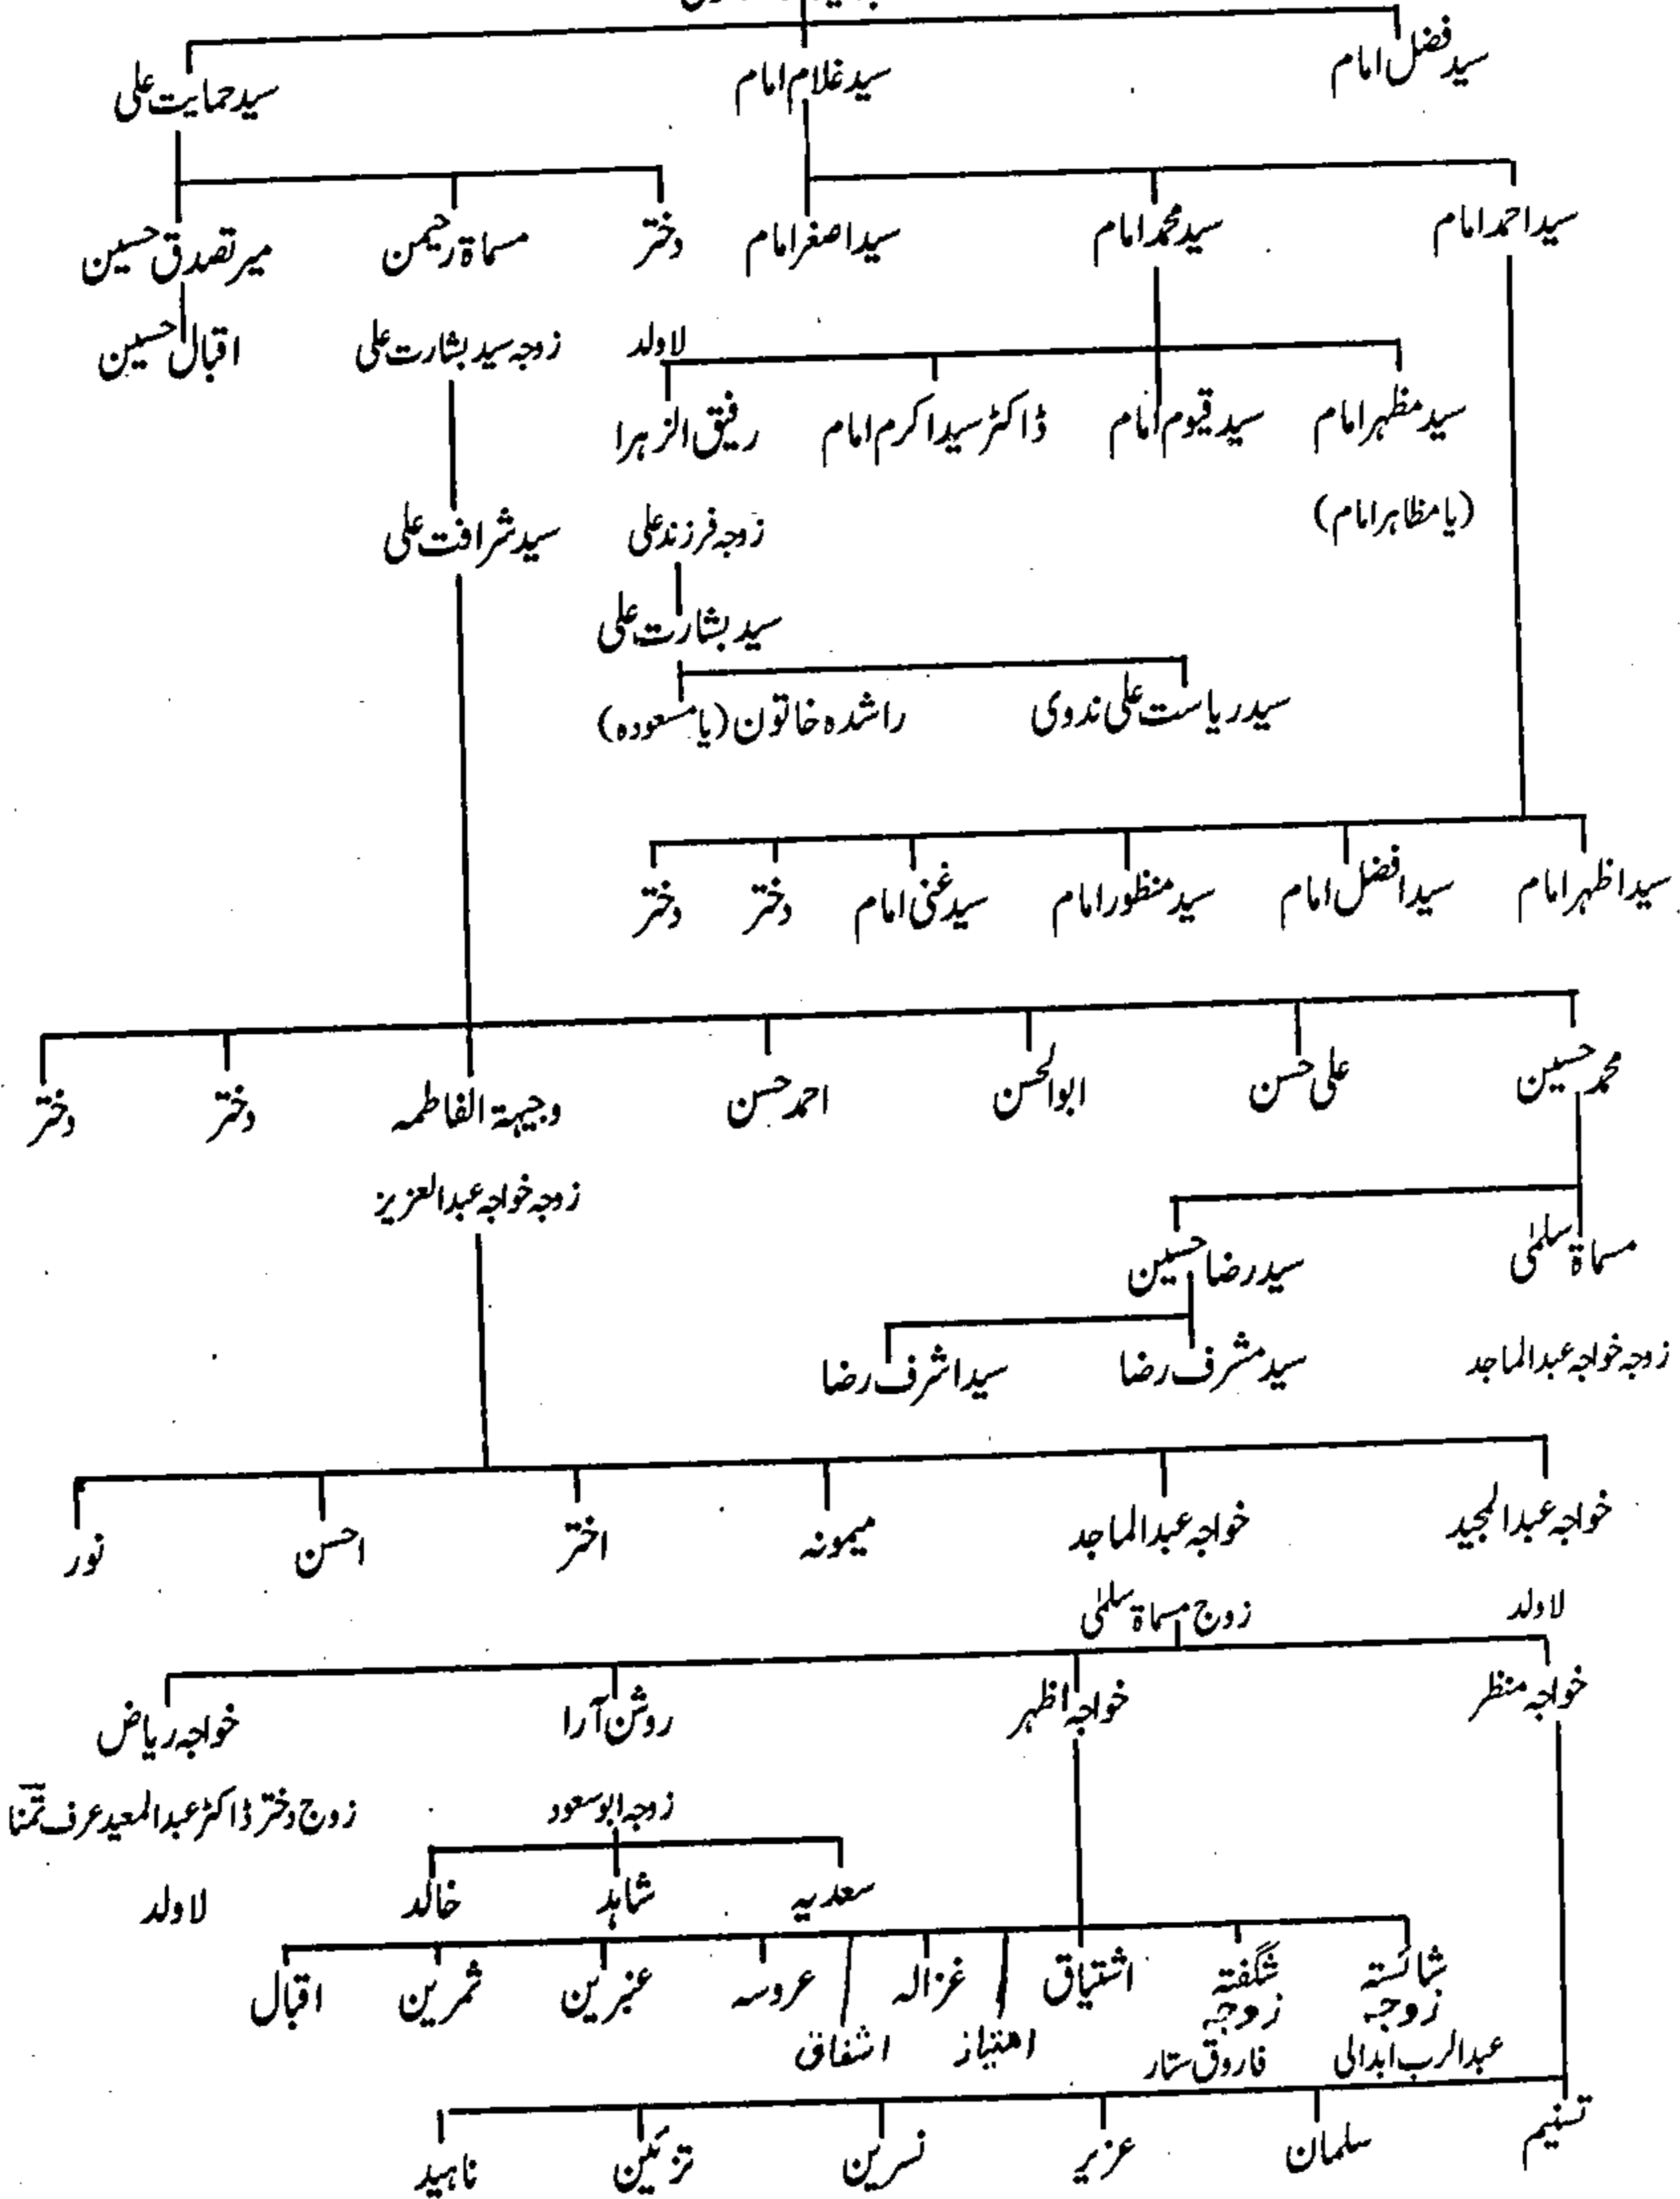 سید فضل امام سید غلام امام سید حمایت علی
سید احمد امام سید محمد امام سید اصغر امام دختر مسماۃ رحیمن میر تصدق حسین
لاولد زوجہ سید بشارت علی اقبال حسین
سید مظہر امام سید قیوم امام ڈاکٹر سید اکرم امام رفیق الزہرا
(یا مظاہر امام) زوجہ فرزند علی سید شرافت علی
سید بشارت علی
سید ریاست علی ندوی راشدہ خاتون (یا مسعودہ)
سید اظہر امام سید افضل امام سید منظور امام سید غنی امام دختر دختر
محمد حسین علی حسن ابوالحسن احمد حسن وجیہۃ الفاطمہ دختر دختر
زوجہ خواجہ عبدالعزیز
مسماۃ سلمٰی سید رضا حسین
زوجہ خواجہ عبدالماجد سید مشرف رضا سید اشرف رضا
خواجہ عبدالمجید خواجہ عبدالماجد میمونہ اختر احسن نور
لاولد زوج مسماۃ سلمٰی
خواجہ منظر خواجہ اظہر روشن آرا خواجہ ریاض
زوجہ ابو سعود زوج دختر ڈاکٹر عبدالمعید عرف تمنّا
سعدیہ شاہد خالد لاولد
شائستہ شگفتہ اشتیاق غزالہ عروسہ عنبرین ثمرین اقبال
زوجہ زوجہ
عبدالرب ابدالی فاروق ستار امتیاز اشفاق
تسنیم سلمان عزیر نسرین تزئین ناہید